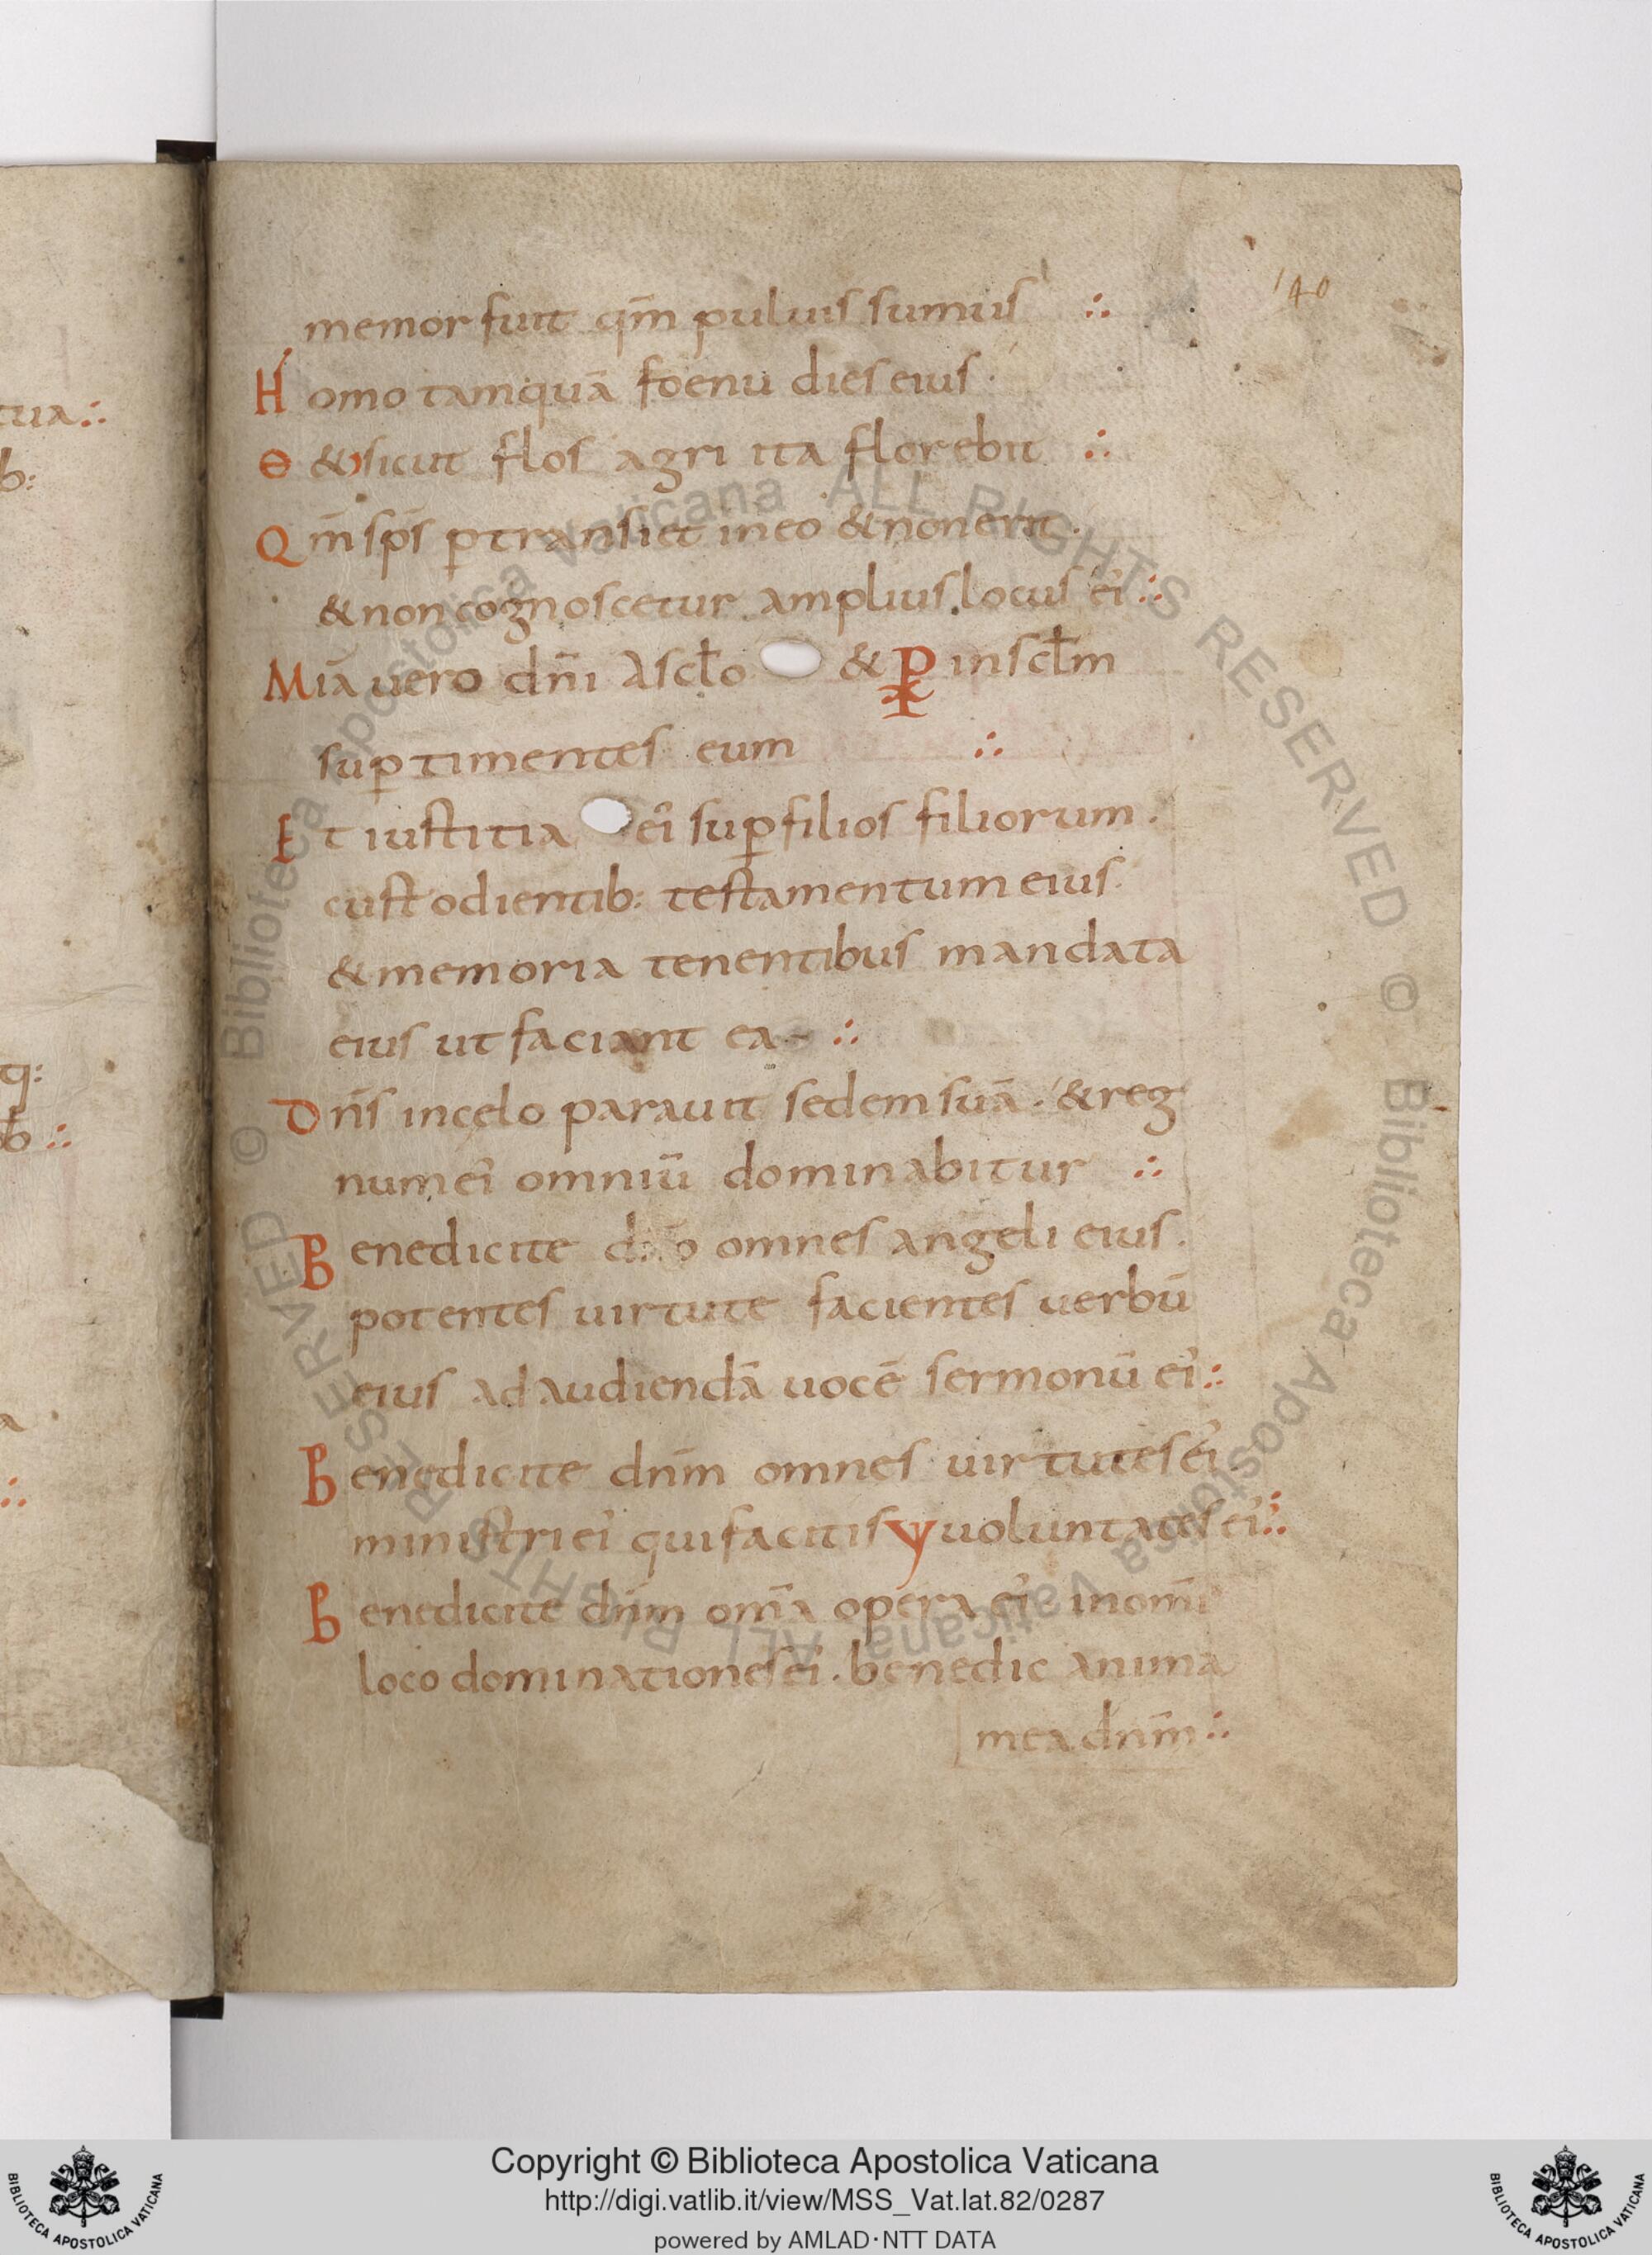 140
memor fuit qm̄ puluis sumus ∴
Homo tamquā foenū dies eius ·
Θ & sicut flos agri ita florebit ∴
Qm̄ sp̄s ꝑtransiet in eo & non erit ·
& non cognoscetur amplius locus ei' ∴
Mīa uero dn̄i a scło & P in scłm
suꝑ timentes eum ∴
Et iustitia ei' suꝑ filios filiorum ·
custodientib: testamentum eius ·
& memoria tenentibus mandata
eius ut faciant ea ∴
Dn̄s in celo parauit sedem suā · & reg
num ei' omniū dominabitur ∴
Benedicite dn̄o omnes angeli eius ·
potentes uirtute facientes uerbū
eius ad audiendā uocē sermonū ei' ∴
Benedicite dn̄m omnes uirtutes ei' ·
ministri ei' qui facitis uoluntates ei' ∴
Benedicite dn̄m om̄a opera ei' in om̄i
loco dominationes ei' · benedic anima
mea dn̄m ∴
tua ∴
b:
q:
© Biblioteca Apostolica Vaticana ALL RIGHTS RESERVED © Biblioteca Apostolica Vaticana ALL RIGHTS RESERVED
Copyright © Biblioteca Apostolica Vaticana
http://digi.vatlib.it/view/MSS_Vat.lat.82/0287
powered by AMLAD·NTT DATA
BIBLIOTECA APOSTOLICA VATICANA
BIBLIOTECA APOSTOLICA VATICANA